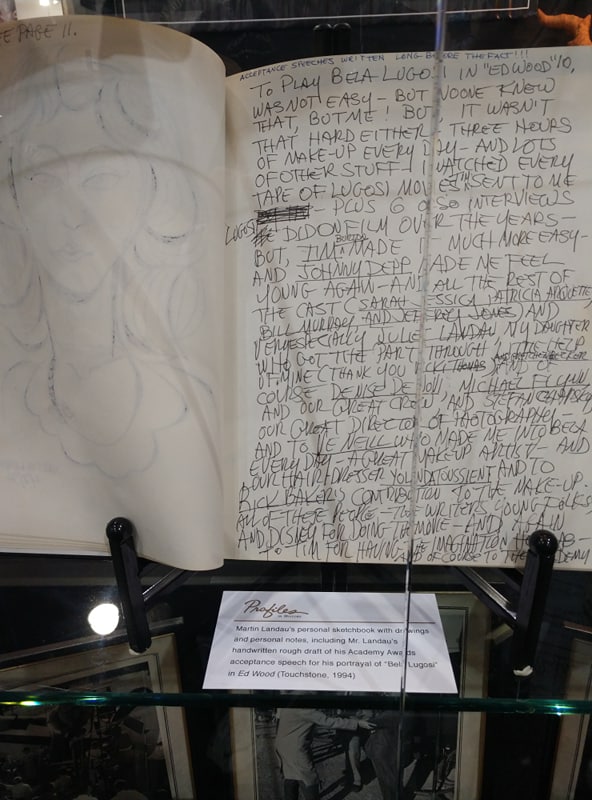 E PAGE 11.
ACCEPTANCE SPEECHES WRITTEN LONG BEFORE THE FACT!!!
TO PLAY BELA LUGOSI IN "ED WOOD"
WAS NOT EASY — BUT NOONE KNEW
THAT, BUT ME! BUT IT WASN'T
THAT HARD EITHER — THREE HOURS
OF MAKE-UP EVERY DAY — AND LOTS
OF OTHER STUFF — I WATCHED EVERY
TAPE OF LUGOSI MOVIES SENT TO ME
— PLUS 6 OR SO INTERVIEWS
LUGOSI DID ON FILM OVER THE YEARS —
BUT, TIM BURTON MADE MUCH MORE EASY —
AND JOHNNY DEPP MADE ME FEEL
YOUNG AGAIN — AND ALL THE REST OF
THE CAST (SARAH JESSICA, PATRICIA ARQUETTE,
BILL MURRAY, AND JEFFREY JONES) AND
ESPECIALLY JULIE LANDAU MY DAUGHTER
WHO GOT THE PART THROUGH HELP
OF MINE (THANK YOU AND OF
COURSE DENISE DE NOVI, MICHAEL FLYNN
AND OUR GREAT CREW, AND STEFAN CZAPSKY
OUR GREAT DIRECTOR OF PHOTOGRAPHY —
AND TO VE NEILL WHO MADE ME INTO BELA
EVERY DAY A GREAT MAKE-UP ARTIST — AND
OUR HAIRDRESSER YOLANDA TOUSSIENT AND TO
RICK BAKER'S CONTRIBUTION TO THE MAKE-UP.
ALL OF THESE PEOPLE — THE WRITERS YOUNG FOLKS,
AND DISNEY FOR DOING THE MOVIE — AND AGAIN
TO TIM FOR HAVING THE IMAGINATION AND OF COURSE TO THE ACADEMY
Profiles
IN HISTORY
Martin Landau's personal sketchbook with drawings
and personal notes, including Mr. Landau's
handwritten rough draft of his Academy Awards
acceptance speech for his portrayal of "Bela Lugosi"
in Ed Wood (Touchstone, 1994)